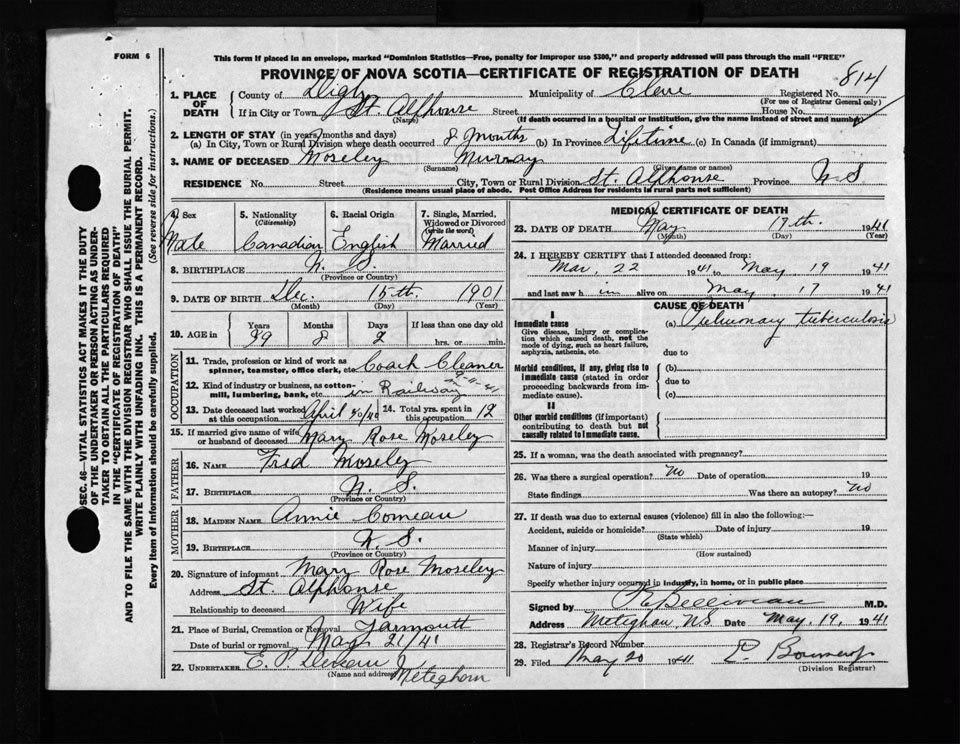 FORM 6
This form if placed in an envelope, marked "Dominion Statistics—Free, penalty for improper use $300," and properly addressed will pass through the mail "FREE"
PROVINCE OF NOVA SCOTIA—CERTIFICATE OF REGISTRATION OF DEATH
814
1. PLACE OF DEATH County of Digby Municipality of Clare Registered No.
(For use of Registrar General only)
If in City or Town St. Alphonse Street House No.
(Name) (If death occurred in a hospital or institution, give the name instead of street and number)
2. LENGTH OF STAY (in years, months and days)
(a) In City, Town or Rural Division where death occurred 8 months (b) In Province Lifetime (c) In Canada (if immigrant)
3. NAME OF DECEASED Moseley Murray
(Surname) (Given name or names)
RESIDENCE No. Street City, Town or Rural Division St. Alphonse Province N.S
(Residence means usual place of abode. Post Office Address for residents in rural parts not sufficient)
4. Sex Male
5. Nationality (Citizenship) Canadian
6. Racial Origin English
7. Single, Married, Widowed or Divorced (write the word) Married
8. BIRTHPLACE N. S.
(Province or Country)
9. DATE OF BIRTH Dec. 15th. 1901
(Month) (Day) (Year)
10. AGE in Years 39 Months 8 Days 2 If less than one day old hrs. or min.
OCCUPATION
11. Trade, profession or kind of work as spinner, teamster, office clerk, etc. Coach Cleaner
12. Kind of industry or business, as cotton-mill, lumbering, bank, etc. on Railway
13. Date deceased last worked at this occupation April 30/40 14. Total yrs. spent in this occupation 12
15. If married give name of wife or husband of deceased Mary Rose Moseley
FATHER
16. NAME Fred Moseley
17. BIRTHPLACE N. S.
(Province or Country)
MOTHER
18. MAIDEN NAME Annie Comeau
19. BIRTHPLACE N. S.
(Province or Country)
20. Signature of informant Mary Rose Moseley
Address St. Alphonse
Relationship to deceased Wife
21. Place of Burial, Cremation or Removal Yarmouth
Date of burial or removal May 21/41
22. UNDERTAKER E. P. Deveau Meteghan
(Name and address)
MEDICAL CERTIFICATE OF DEATH
23. DATE OF DEATH May 17th. 1941
(Month) (Day) (Year)
24. I HEREBY CERTIFY that I attended deceased from:
Mar. 22 1941 to May 19 1941
and last saw him alive on May 17 1941
CAUSE OF DEATH
I
Immediate cause (a) Pulmonary tuberculosis
Give disease, injury or complication which caused death, not the mode of dying, such as heart failure, asphyxia, asthenia, etc.
due to
Morbid conditions, if any, giving rise to immediate cause (stated in order proceeding backwards from immediate cause).
(b)
due to
(c)
II
Other morbid conditions (if important) contributing to death but not causally related to immediate cause.
25. If a woman, was the death associated with pregnancy?
26. Was there a surgical operation? No Date of operation 19
State findings Was there an autopsy? No
27. If death was due to external causes (violence) fill in also the following:—
Accident, suicide or homicide? Date of injury 19
(State which)
Manner of injury
(How sustained)
Nature of injury
Specify whether injury occurred in industry, in home, or in public place
Signed by Belliveau M.D.
Address Meteghan, N.S Date May, 19, 1941
28. Registrar's Record Number
29. Filed May 20 1941
(Division Registrar)
SEC. 46—VITAL STATISTICS ACT MAKES IT THE DUTY OF THE UNDERTAKER OR PERSON ACTING AS UNDERTAKER TO OBTAIN ALL THE PARTICULARS REQUIRED IN THE "CERTIFICATE OF REGISTRATION OF DEATH" AND TO FILE THE SAME WITH THE DIVISION REGISTRAR WHO SHALL ISSUE THE BURIAL PERMIT.
WRITE PLAINLY WITH UNFADING INK. THIS IS A PERMANENT RECORD.
Every item of information should be carefully supplied. (See reverse side for instructions.)